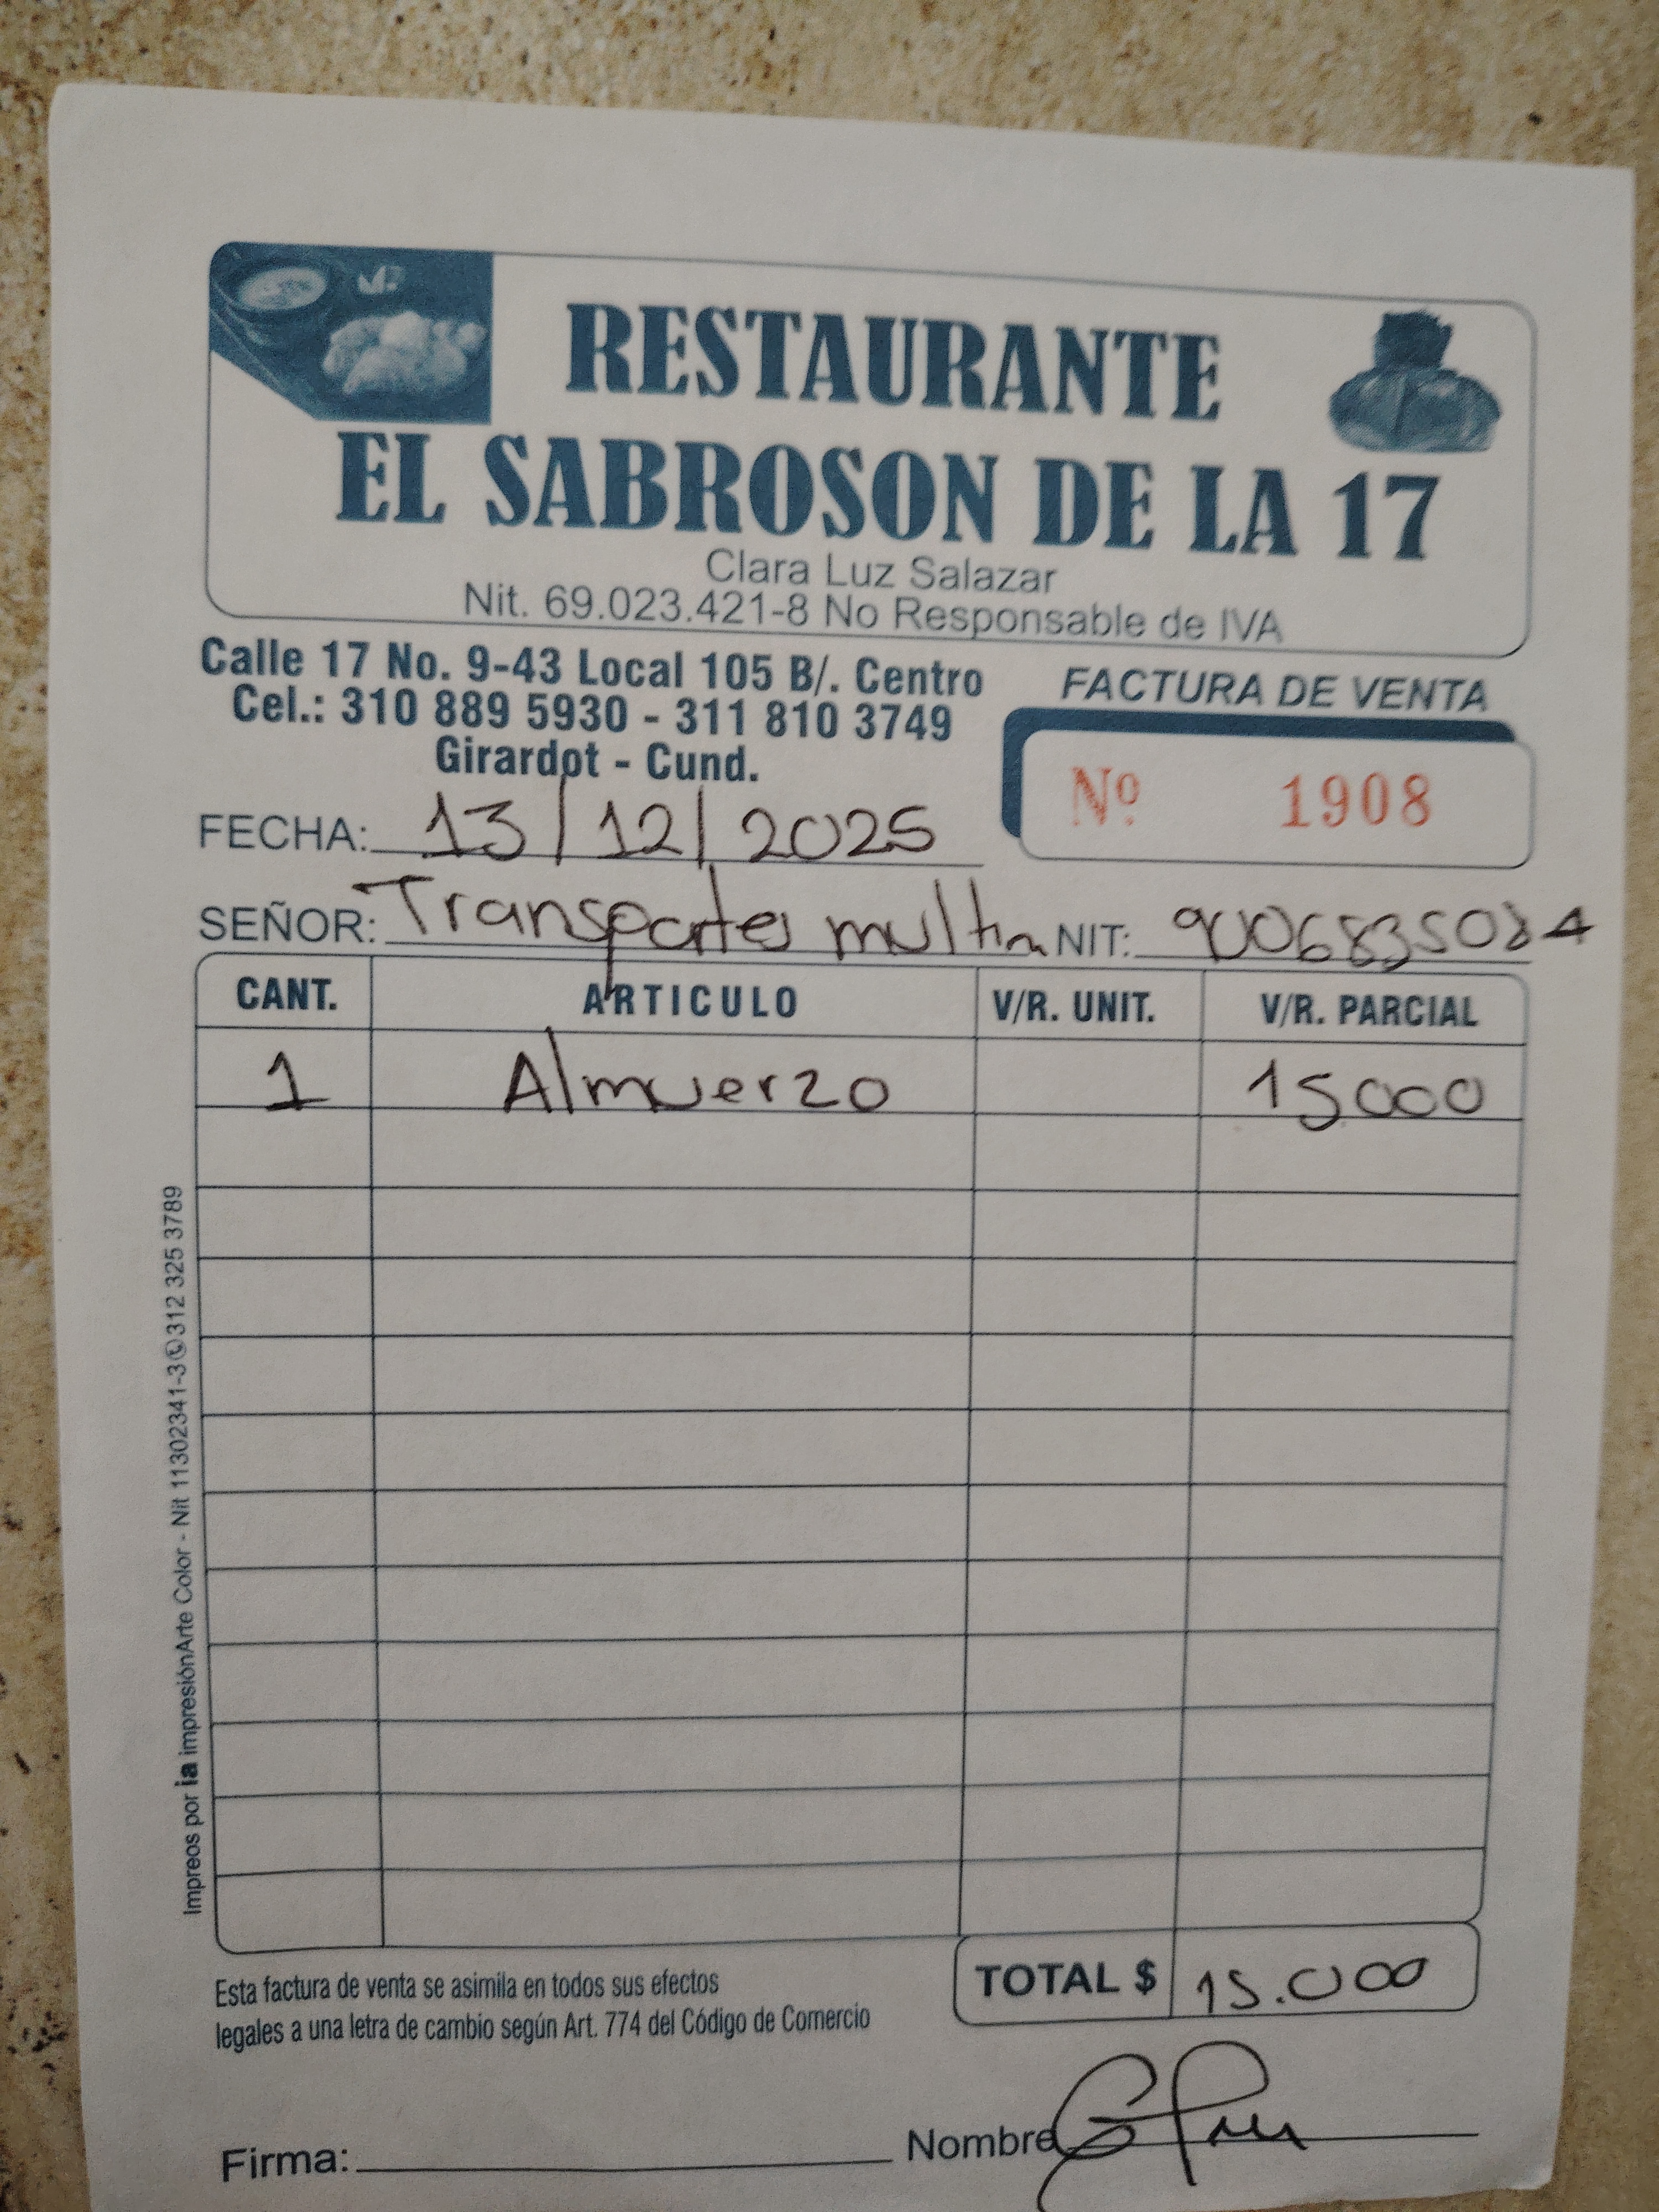 RESTAURANTE
EL SABROSON DE LA 17
Clara Luz Salazar
Nit. 69.023.421-8 No Responsable de IVA
Calle 17 No. 9-43 Local 105 B/. Centro
Cel.: 310 889 5930 - 311 810 3749
Girardot - Cund.
FACTURA DE VENTA
Nº 1908
FECHA: 13/12/2025
SEÑOR: Transportes NIT:
CANT. ARTICULO V/R. UNIT. V/R. PARCIAL
1 Almuerzo 15000
Impreos por ia impresiónArte Color - Nit 11302341-3 312 325 3789
Esta factura de venta se asimila en todos sus efectos
legales a una letra de cambio según Art. 774 del Código de Comercio
TOTAL $ 15.000
Firma: Nombre